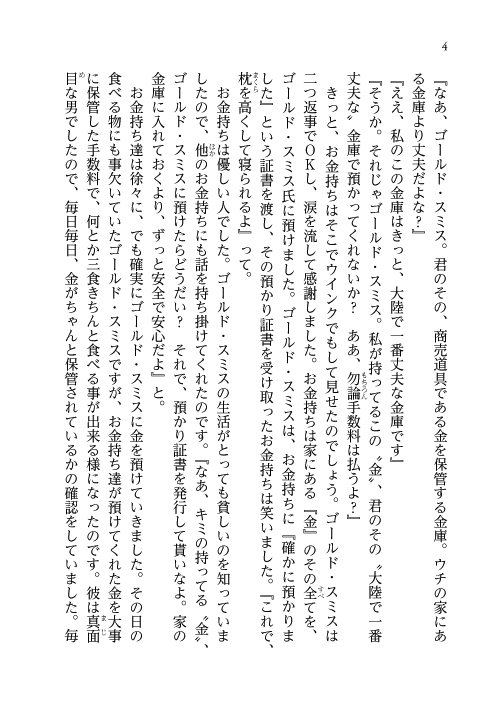 4
『なあ、ゴールド・スミス。君のその、商売道具である金を保管する金庫。ウチの家にあ
る金庫より丈夫だよな？』
『ええ、私のこの金庫はきっと、大陸で一番丈夫な金庫です』
『そうか。それじゃゴールド・スミス。私が持ってるこの〝金〟、君のその〝大陸で一番
丈夫な〟金庫で預かってくれないか？　ああ、勿論手数料は払うよ？』
きっと、お金持ちはそこでウインクでもして見せたのでしょう。ゴールド・スミスは
二つ返事でＯＫし、涙を流して感謝しました。お金持ちは家にある『金』のその全てを、
ゴールド・スミス氏に預けました。ゴールド・スミスは、お金持ちに『確かに預かりま
した』という証書を渡し、その預かり証書を受け取ったお金持ちは笑いました。『これで、
枕を高くして寝られるよ』って。
お金持ちは優しい人でした。ゴールド・スミスの生活がとっても貧しいのを知っていま
したので、他のお金持ちにも話を持ち掛けてくれたのです。『なあ、キミの持ってる〝金〟、
ゴールド・スミスに預けたらどうだい？　それで、預かり証書を発行して貰いなよ。家の
金庫に入れておくより、ずっと安全で安心だよ』と。
お金持ち達は徐々に、でも確実にゴールド・スミスに金を預けていきました。その日の
食べる物にも事欠いていたゴールド・スミスですが、お金持ち達が預けてくれた金を大事
に保管した手数料で、何とか三食きちんと食べる事が出来る様になったのです。彼は真面
目な男でしたので、毎日毎日、金がちゃんと保管されているかの確認をしていました。毎